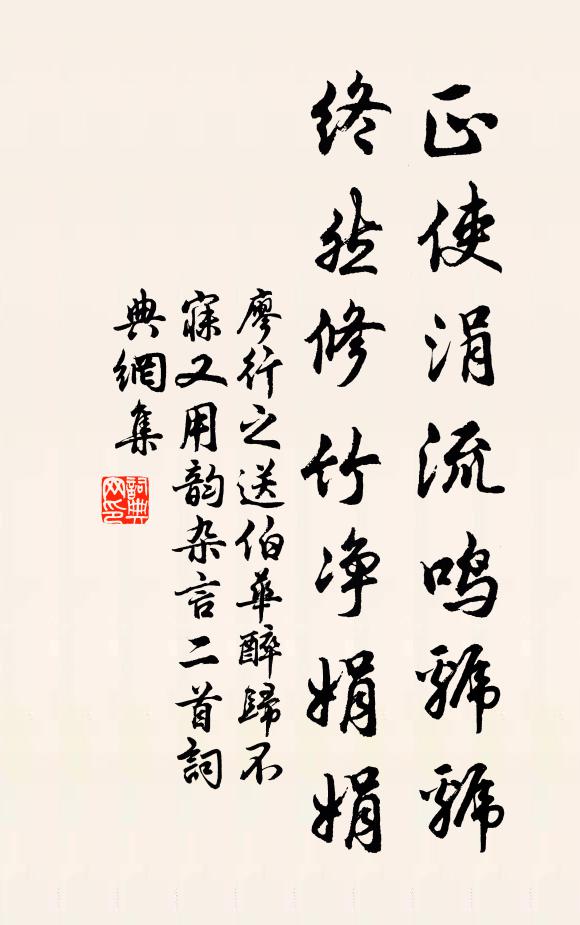 正使涓流鸣虢虢
终然修竹净娟娟
廖行之送伯华醉歸不
寐又用韵杂言二首詞
典網集
詞典
网印